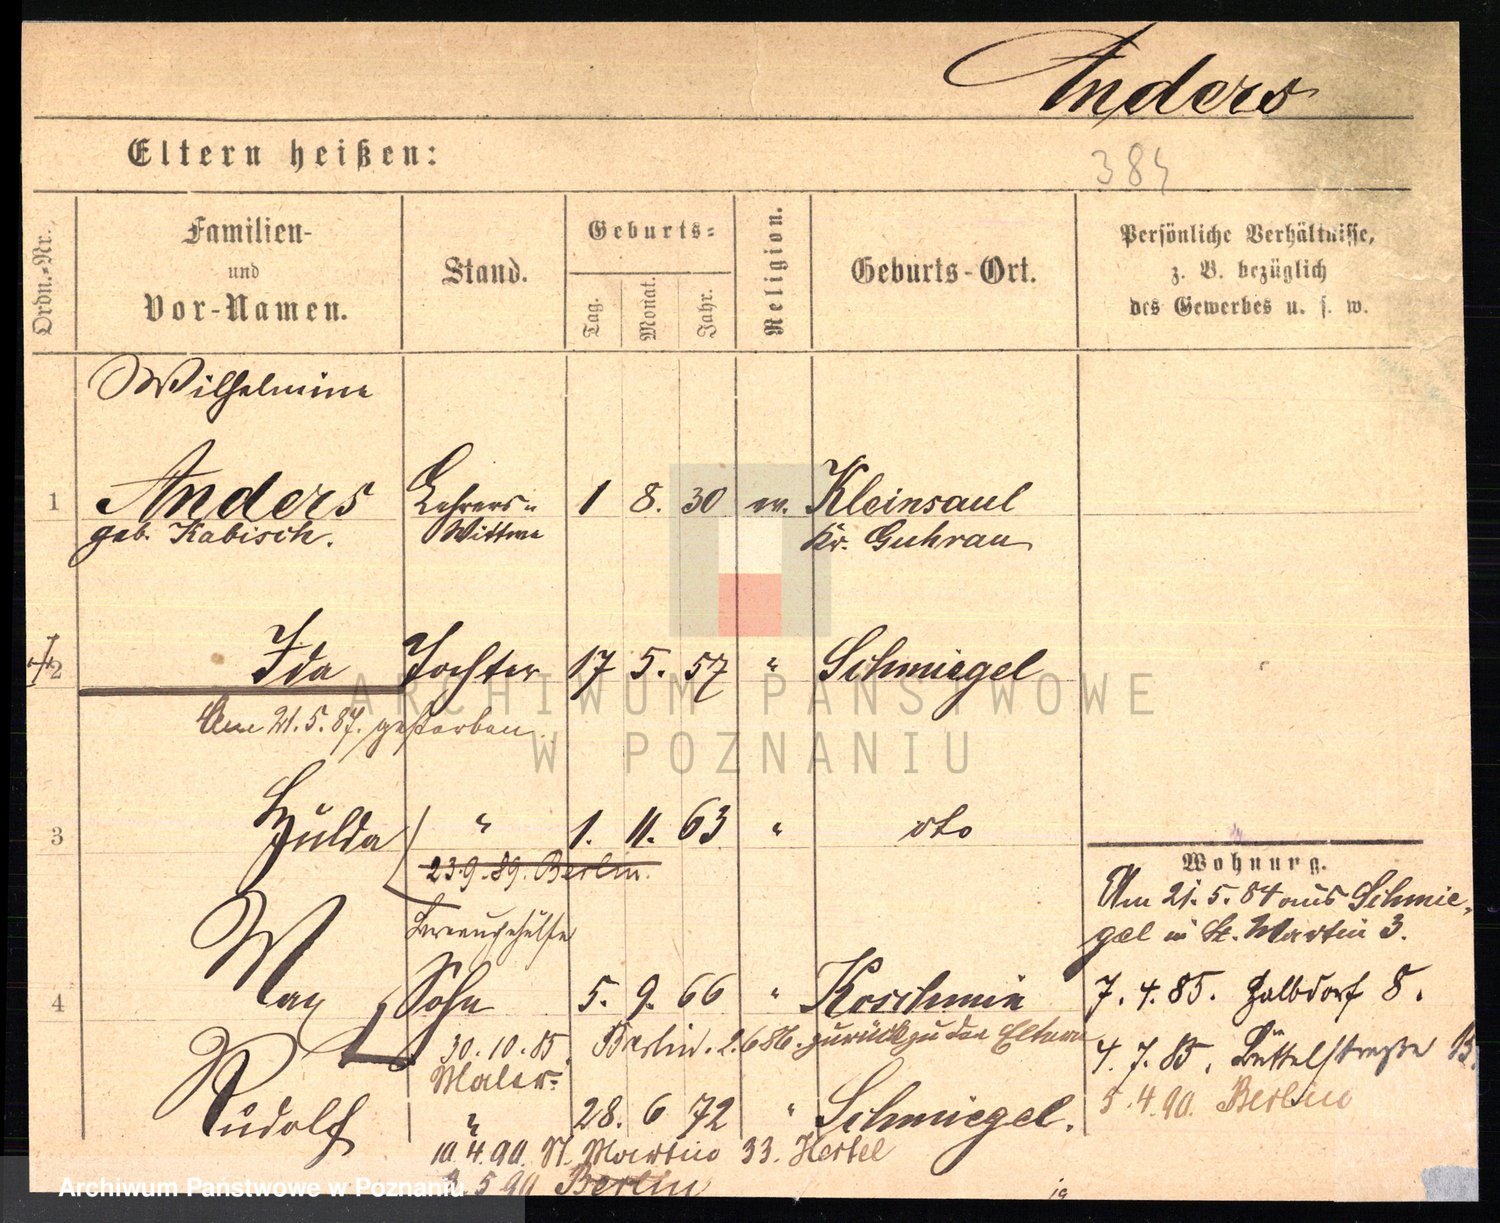 Anders
Eltern heißen:
384
Ordn.-Nr.
Familien-
und
Vor-Namen.
Stand.
Geburts-
Tag.
Monat.
Jahr.
Religion.
Geburts-Ort.
Persönliche Verhältnisse,
z. B. bezüglich
des Gewerbes u. s. w.
Wilhelmine
1 Anders Lehrers- 1 8. 30 ev. Kleinsaul
geb. Kabisch. Wittwe Kr. Guhrau
2 Ida Tochter 17 5. 57 " Schmiegel
Am 21. 5. 87. gestorben.
3 Hulda " 1. 11. 63 " dto
23.9.89. Berlin.
Wohnung.
Am 21. 5. 84 aus Schmie-
gel in St. Martin 3.
4 Max Sohn 5. 9. 66 " Koschmin
7. 4. 85. Halbdorf 8.
30. 10. 85. Berlin. 2. 6 86. zurück zu den Eltern
4. 7. 85. Büttelstraße
Maler.
5. 4. 90. Berlin
Rudolf " 28. 6 72 " Schmiegel.
10. 4. 90. St. Martin 33. Hertel
3. 5 90 Berlin
ARCHIWUM PAŃSTWOWE
W POZNANIU
Archiwum Państwowe w Poznaniu